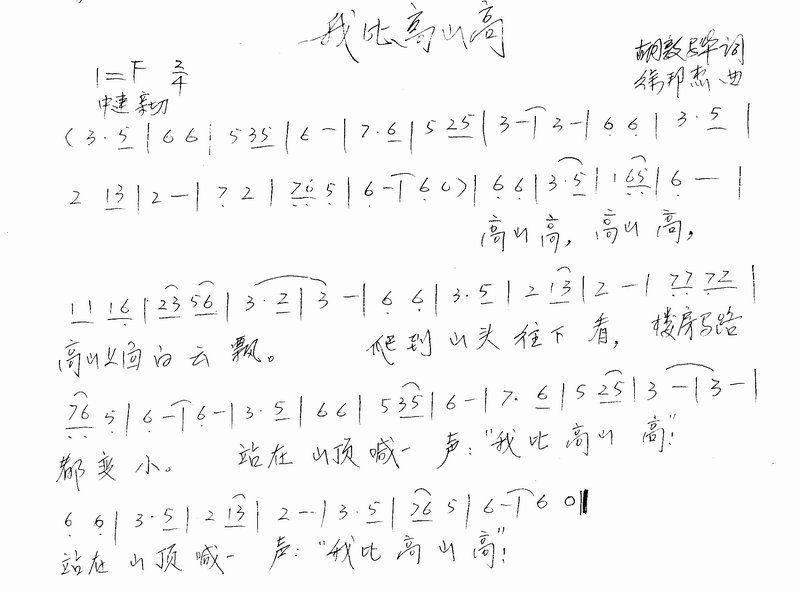 我比高山高
1=F 2/4
胡敦骅词
中速 亲切
徐邦杰 曲
(3·5|66|5 35|6-|7·6|5 25|3-|3-|66|3·5|
2 13|2-|72|76 5|6-|60)|66|3·5|1 65|6-|
高山高，高山高，
11 16|23 56|3·2|3-|66|3·5|2 13|2-|77 72|
高山上面白云飘。 爬到山头往下看，楼房马路
76 5|6-|6-|3·5|66|5 35|6-|7·6|5 25|3-|3-|
都变小。 站在山顶喊一声："我比高山高！
66|3·5|2 13|2-|3·5|76 5|6-|60‖
站在山顶喊一声："我比高山高"！